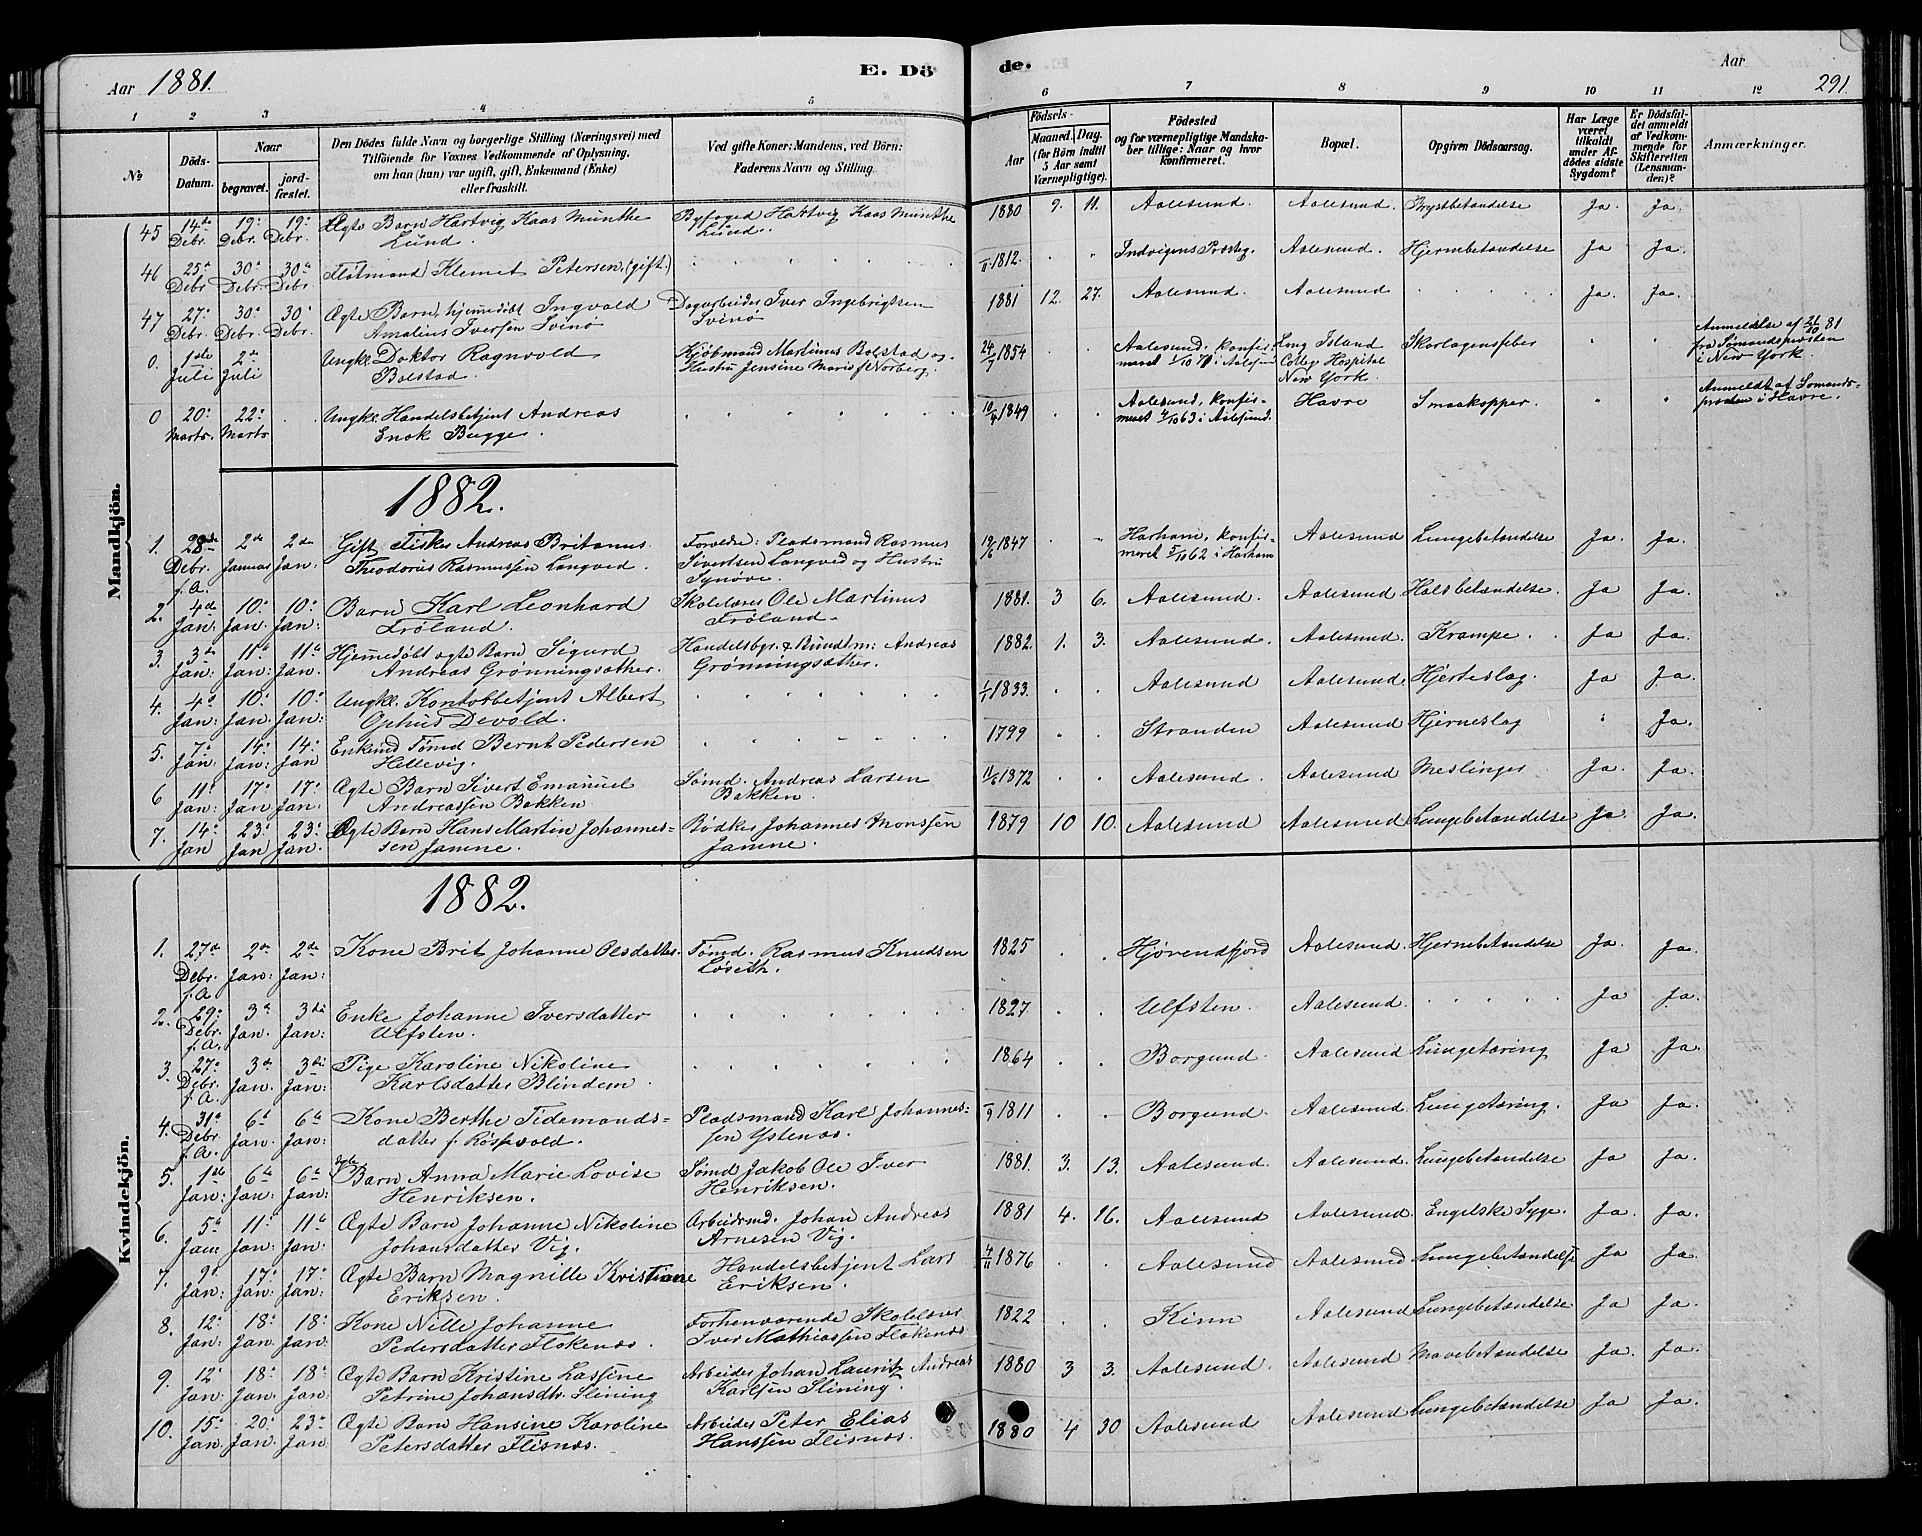 Aar 1881.
E. Dö
de.
Aar
291
1 2 3 4 5
6 7 8 9 10 11 12
№
Döds-Datum.
Naar
begravet.
jord-fæstet.
Den Dödes fulde Navn og borgerlige Stilling (Næringsvei) med
Tilföiende for Voxnes Vedkommende af Oplysning,
om han (hun) var ugift, gift, Enkemand (Enke)
eller fraskilt.
Ved gifte Koner: Mandens, ved Börn:
Faderens Navn og Stilling.
Födsels-
Aar
Maaned. Dag.
(for Börn indtil 5 Aar samt Værnepligtige).
Födested
og for værnepligtige Mandska-
ber tillige: Naar og hvor
konfirmeret.
Bopæl.
Opgiven Dödsaarsag.
Har Læge været tilkaldt under Af-dödes sidste Sygdom?
Er Dödsfal-det anmeldt af Vedkom-mende for Skifteretten (Lensman-den)?
Anmærkninger.
Mandkjön.
45 14de Debr. 19: Debr. 19: Debr. Ægte Barn Hartvig Kaas Munthe Lund. Byfoged Hartvig Kaas Munthe Lund. 1880 9. 11. Aalesund. Aalesund. Brystbetændelse Ja. Ja.
46 25: Debr. 30: Debr. 30: Debr. Klemet Petersen (gift.) 1812. Indvigens Prstg. Aalesund. Hjernbetændelse Ja Ja.
47 27: Debr. 30: Debr. 30: Debr. Ægte Barn, hjemmedöbt Ingvald Amalius Iversen Svinö Dagarbeider Iver Ingebrigtsen Svinö 1881 12. 27. Aalesund. Aalesund Ja. Ja.
0. 1ste Juli 2den Juli Ungkl. Doktor Ragnvald Bolstad. Kjöbmand Martinus Bolstad og Hustru Jensine Marie f. Norberg. 24/7 1854 Aalesund, konfirmeret 1/10 71 i Aalesund Long Island College Hospital New York. Skarlagensfeber " " Anmeldelse af 21/10 81 fra Sömandspresten i New York.
0 20: Marts. 22: Marts Ungkl. Handelsbetjent Andreas Enok Bugge. 10/4 1849 Aalesund, konfirmeret 4/10 63 i Aalesund. Havre Smaakopper. " " Anmeldt af Sömandspresten i Havre.
1882.
1. 28de Debr. f.A. 2de Januar 2de Jan: Gift Fisker Andreas Britanus Theodorus Rasmussen Langved Forældre: Pladsmand Rasmus Sivertsen Langved og Hustru Synöve. 19/6 1847 Harham, konfirmeret 5/10 62 i Harham Aalesund Lungebetændelse Ja. Ja.
2. 4de Jan: 10: Jan. 10: Jan: Barn Karl Leonhard Fröland. Skolelærer Ole Martinus Fröland. 1881. 3 6. Aalesund. Aalesund. Halsbetændelse. Ja Ja.
3. 3de Jan: 11te Jan: 11te Jan. Hjemmedöbt ægte Barn Sigurd Andreas Grönningsæther. Handelsbgr. & Bundtm: Andreas Grönningsæther. 1882. 1. 3. Aalesund. Aalesund. Krampe. Ja Ja
4. 4de Jan: 10: Jan. 10: Jan: Ungkl. Kontorbetjent Albert Ophus Devold. 1/1 1833. Aalesund Aalesund. Hjerteslag. Ja Ja.
5. 7: Jan. 14: Jan: 14: Jan Enkmd Tömd Bernt Pedersen Hellevig. 1799 Stranden Aalesund Hjerneslag Ja.
6 11: Jan: 17: Jan 17: Jan: Ægte Barn Sivert Emanuel Andreassen Bakken. Sömd. Andreas Larsen Bakken. 1872 Aalesund. Aalesund Meslinger Ja. Ja.
7. 14: Jan 23: Jan 23: Jan. Ægte Barn Hans Martin Johannessen Jamne. Bödker Johannes Monssen Jamne. 1879 10 10. Aalesund Aalesund Lungebetændelse Ja. Ja.
1882.
Kvindekjön.
1. 27de Debr. f.A 2de Jan: 2de Jan: Kone Brit Johanne Olsdatter. Tömd. Rasmus Knudsen Löseth. 1825 Hjörendfjord Aalesund. Hjernebetændelse Ja. Ja.
2. 29: Debr. f.A. 3de Jan. 3de Jan: Enke Johanne Iversdatter Ulfsten. 1827. Ulfsten. Aalesund. Ja Ja.
3. 27: Debr. f.A. 3de Jan: 3die Jan: Pige Karoline Nikoline Karlsdatter Blindem. 1864 Borgund. Aalesund Lungetæring Ja Ja.
4. 31te Debr. f.A. 6te Jan. 6te Jan: Kone Berthe Tidemandsdatter f. Rösvold. Pladsmand Karl Johannessen Ystenæs. 1811 Borgund. Aalesund. Lungetæring. Ja Ja.
5. 1ste Jan: 6te Jan: 6te Jan: Ægte Barn Anna Marie Lovise Henriksen. Sömd Jakob Ole Iver Henriksen. 1881. 3. 13. Aalesund. Aalesund. Lungebetændelse Ja Ja.
6. 5te Jan: 11: Jan: 11te Jan: Ægte Barn Johanne Nikoline Johansdatter Vig. Arbeidsmd. Johan Andreas Arnesen Vig. 1881 4. 16. Aalesund Aalesund. Engelske Syge. Ja. Ja.
7. 9: Jan: 17: Jan: 17: Jan: Ægte Barn Magnille Kristiane Eriksen. Handelsbetjent Lars Eriksen. 4/11 1876 Aalesund Aalesund Lungebetændelse Ja Ja.
8. 12: Jan: 18: Jan. 18: Jan: Kone Nille Johanne Pedersdatter Flokenæs. Forhenværende Skolelærer Iver Mathiassen Flokenæs. 1822 Kinn Aalesund Lungebetændelse Ja Ja.
9. 12: Jan: 18: Jan: 18: Jan: Ægte Barn Kristine Lassine Petrine Johansdtr. Slining Arbeider Johan Laurits Andreas Karlsen Slining. 1880 3 3. Aalesund. Aalesund Mavebetændelse Ja. Ja.
10. 15: Jan. 20: Jan. 23: Jan. Ægte Barn Hansine Karoline Petersdatter Flisnæs. Arbeider Peter Elias Hanssen Flisnæs. 1880 4 30 Aalesund Aalesund Lungebetændelse Ja Ja.